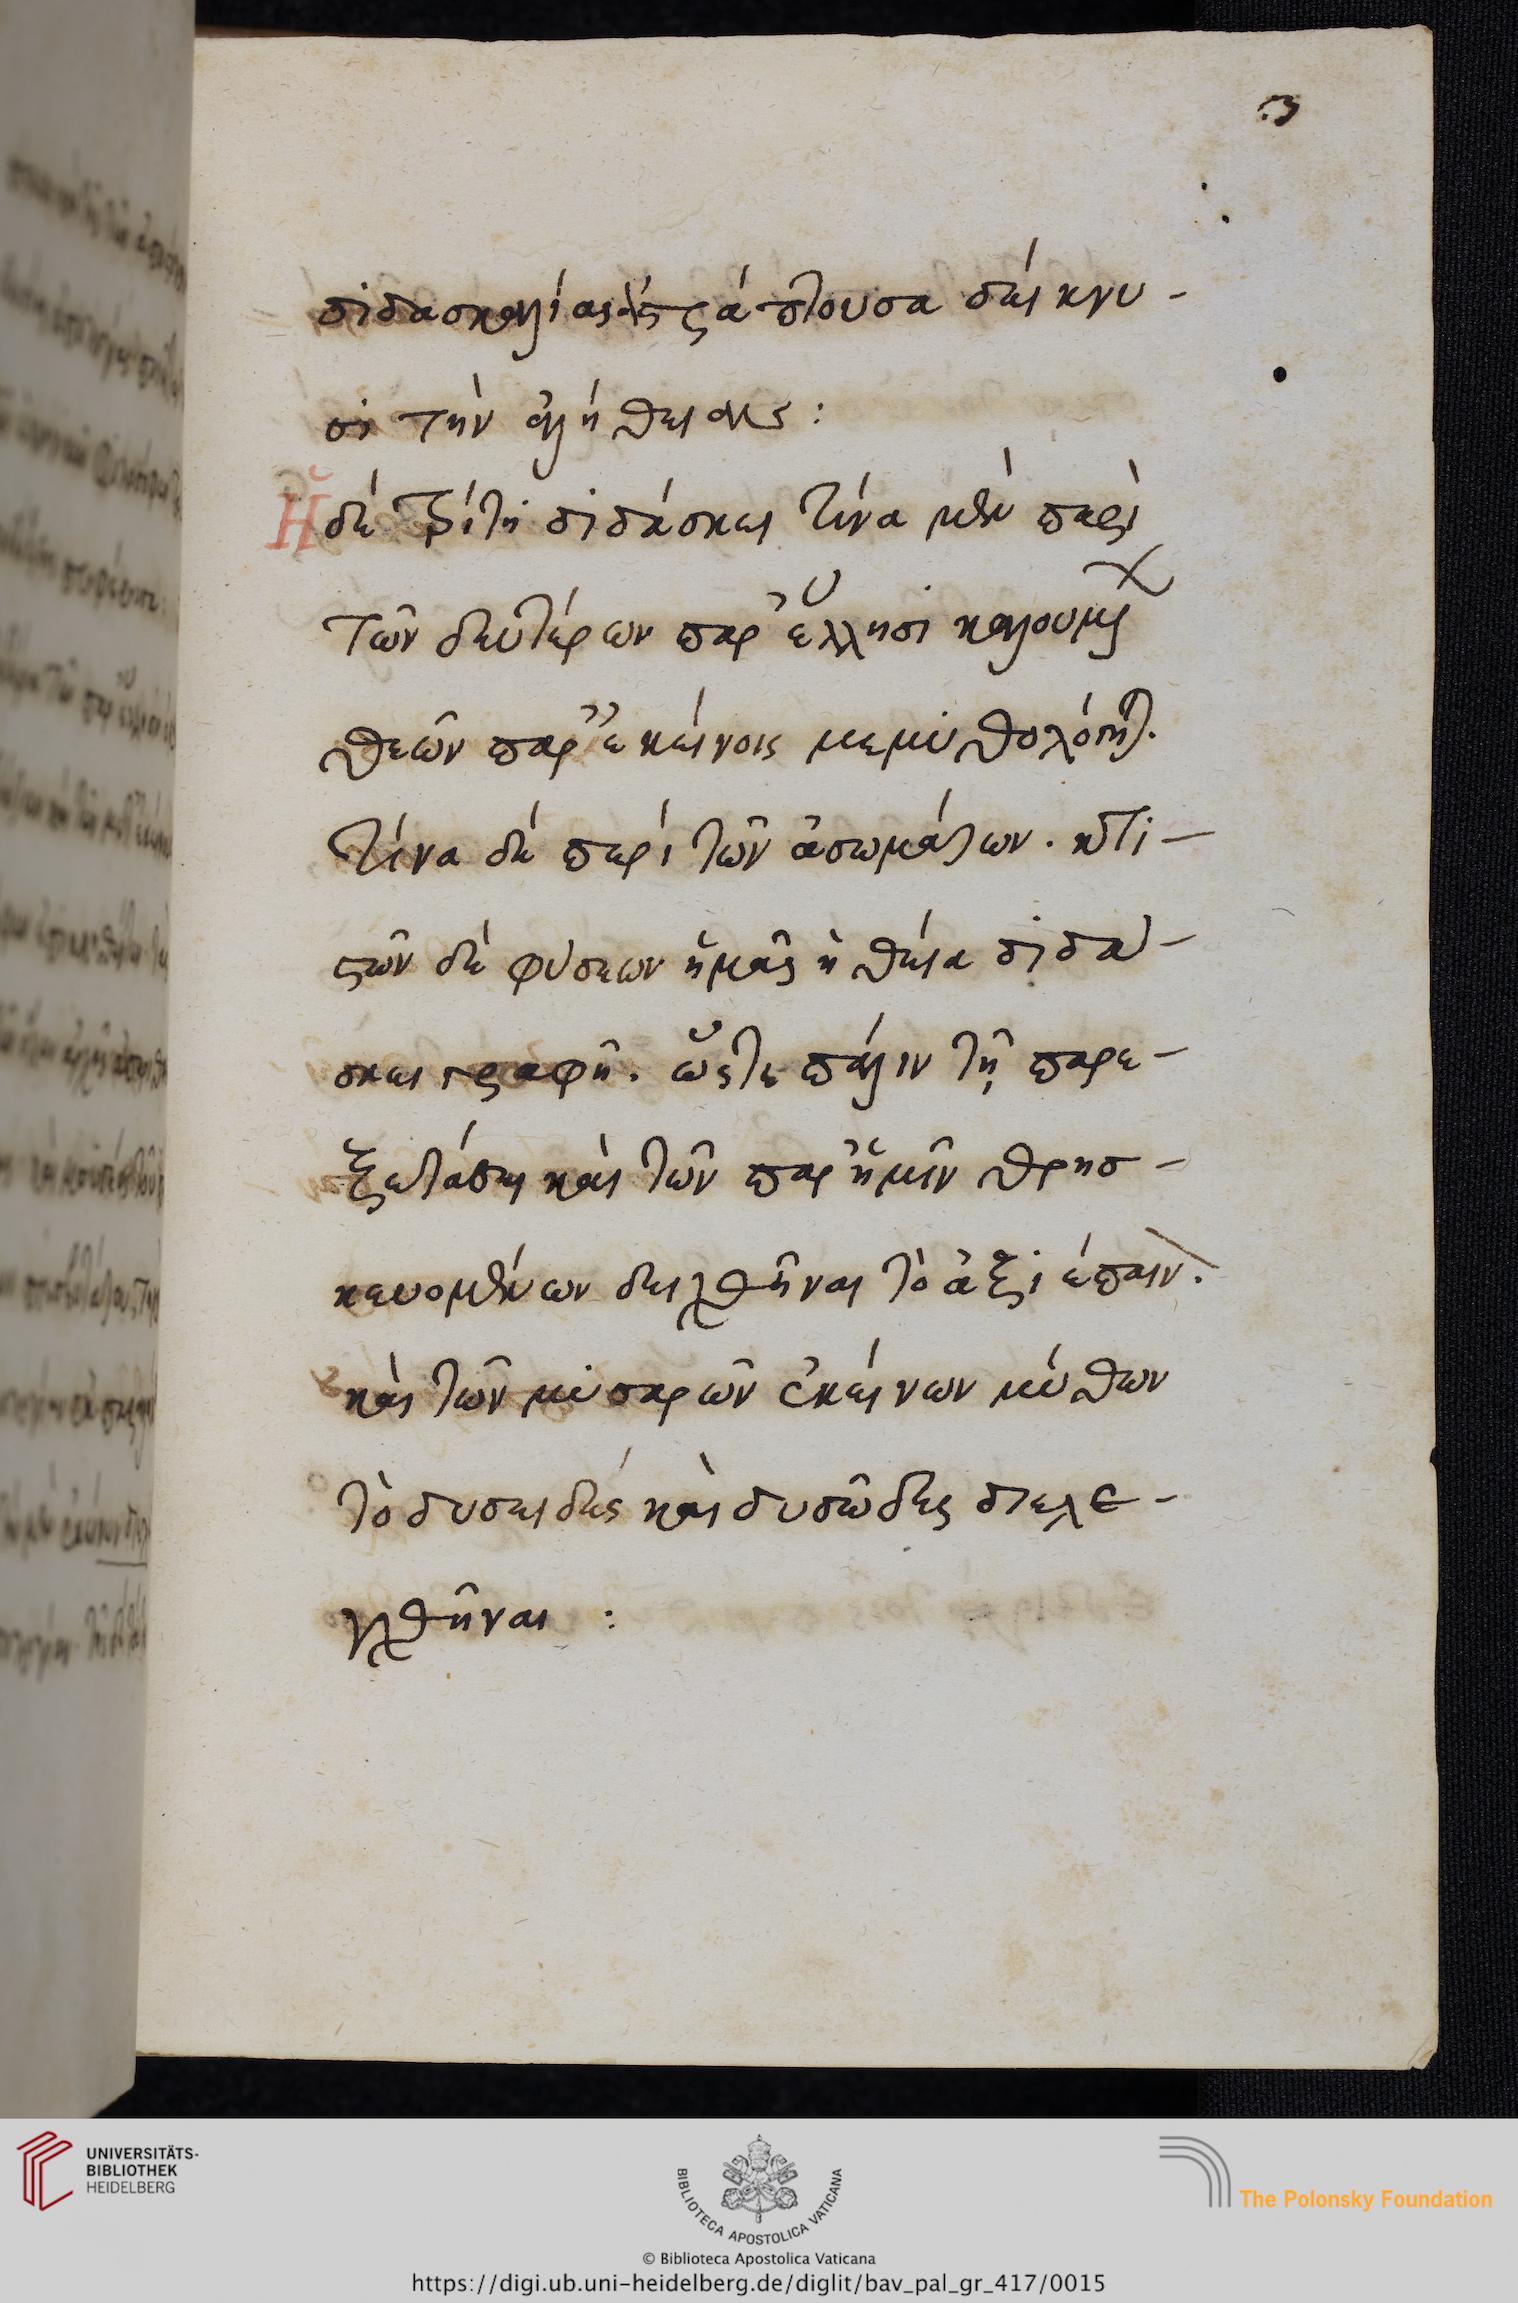 3
διδασκαλίας ἀστράπτουσα δείκνυ-
σι τὴν ἀλήθειαν:
Ἡ δὲ τρίτη διδάσκει τίνα μὲν περὶ
τῶν δευτέρων παρ' ἕλλησι καλουμ
θεῶν παρ' ἐκείνοις μεμυθολόγηται.
τίνα δὲ περὶ τῶν ἀσωμάτων. κτι-
στῶν δὲ φύσεων ἡμᾶς ἡ θεία διδά-
σκει γραφή. ὥστε πάλιν τῇ παρε-
ξετάσει καὶ τῶν παρ' ἡμῖν θρησ-
κευομένων δειχθῆναι τὸ ἀξιέπαινον.
καὶ τῶν μυσαρῶν ἐκείνων μύθων
τὸ δυσειδές καὶ δυσῶδες διελε-
γχθῆναι:
UNIVERSITÄTS-
BIBLIOTHEK
HEIDELBERG
BIBLIOTECA APOSTOLICA VATICANA
The Polonsky Foundation
© Biblioteca Apostolica Vaticana
https://digi.ub.uni-heidelberg.de/diglit/bav_pal_gr_417/0015